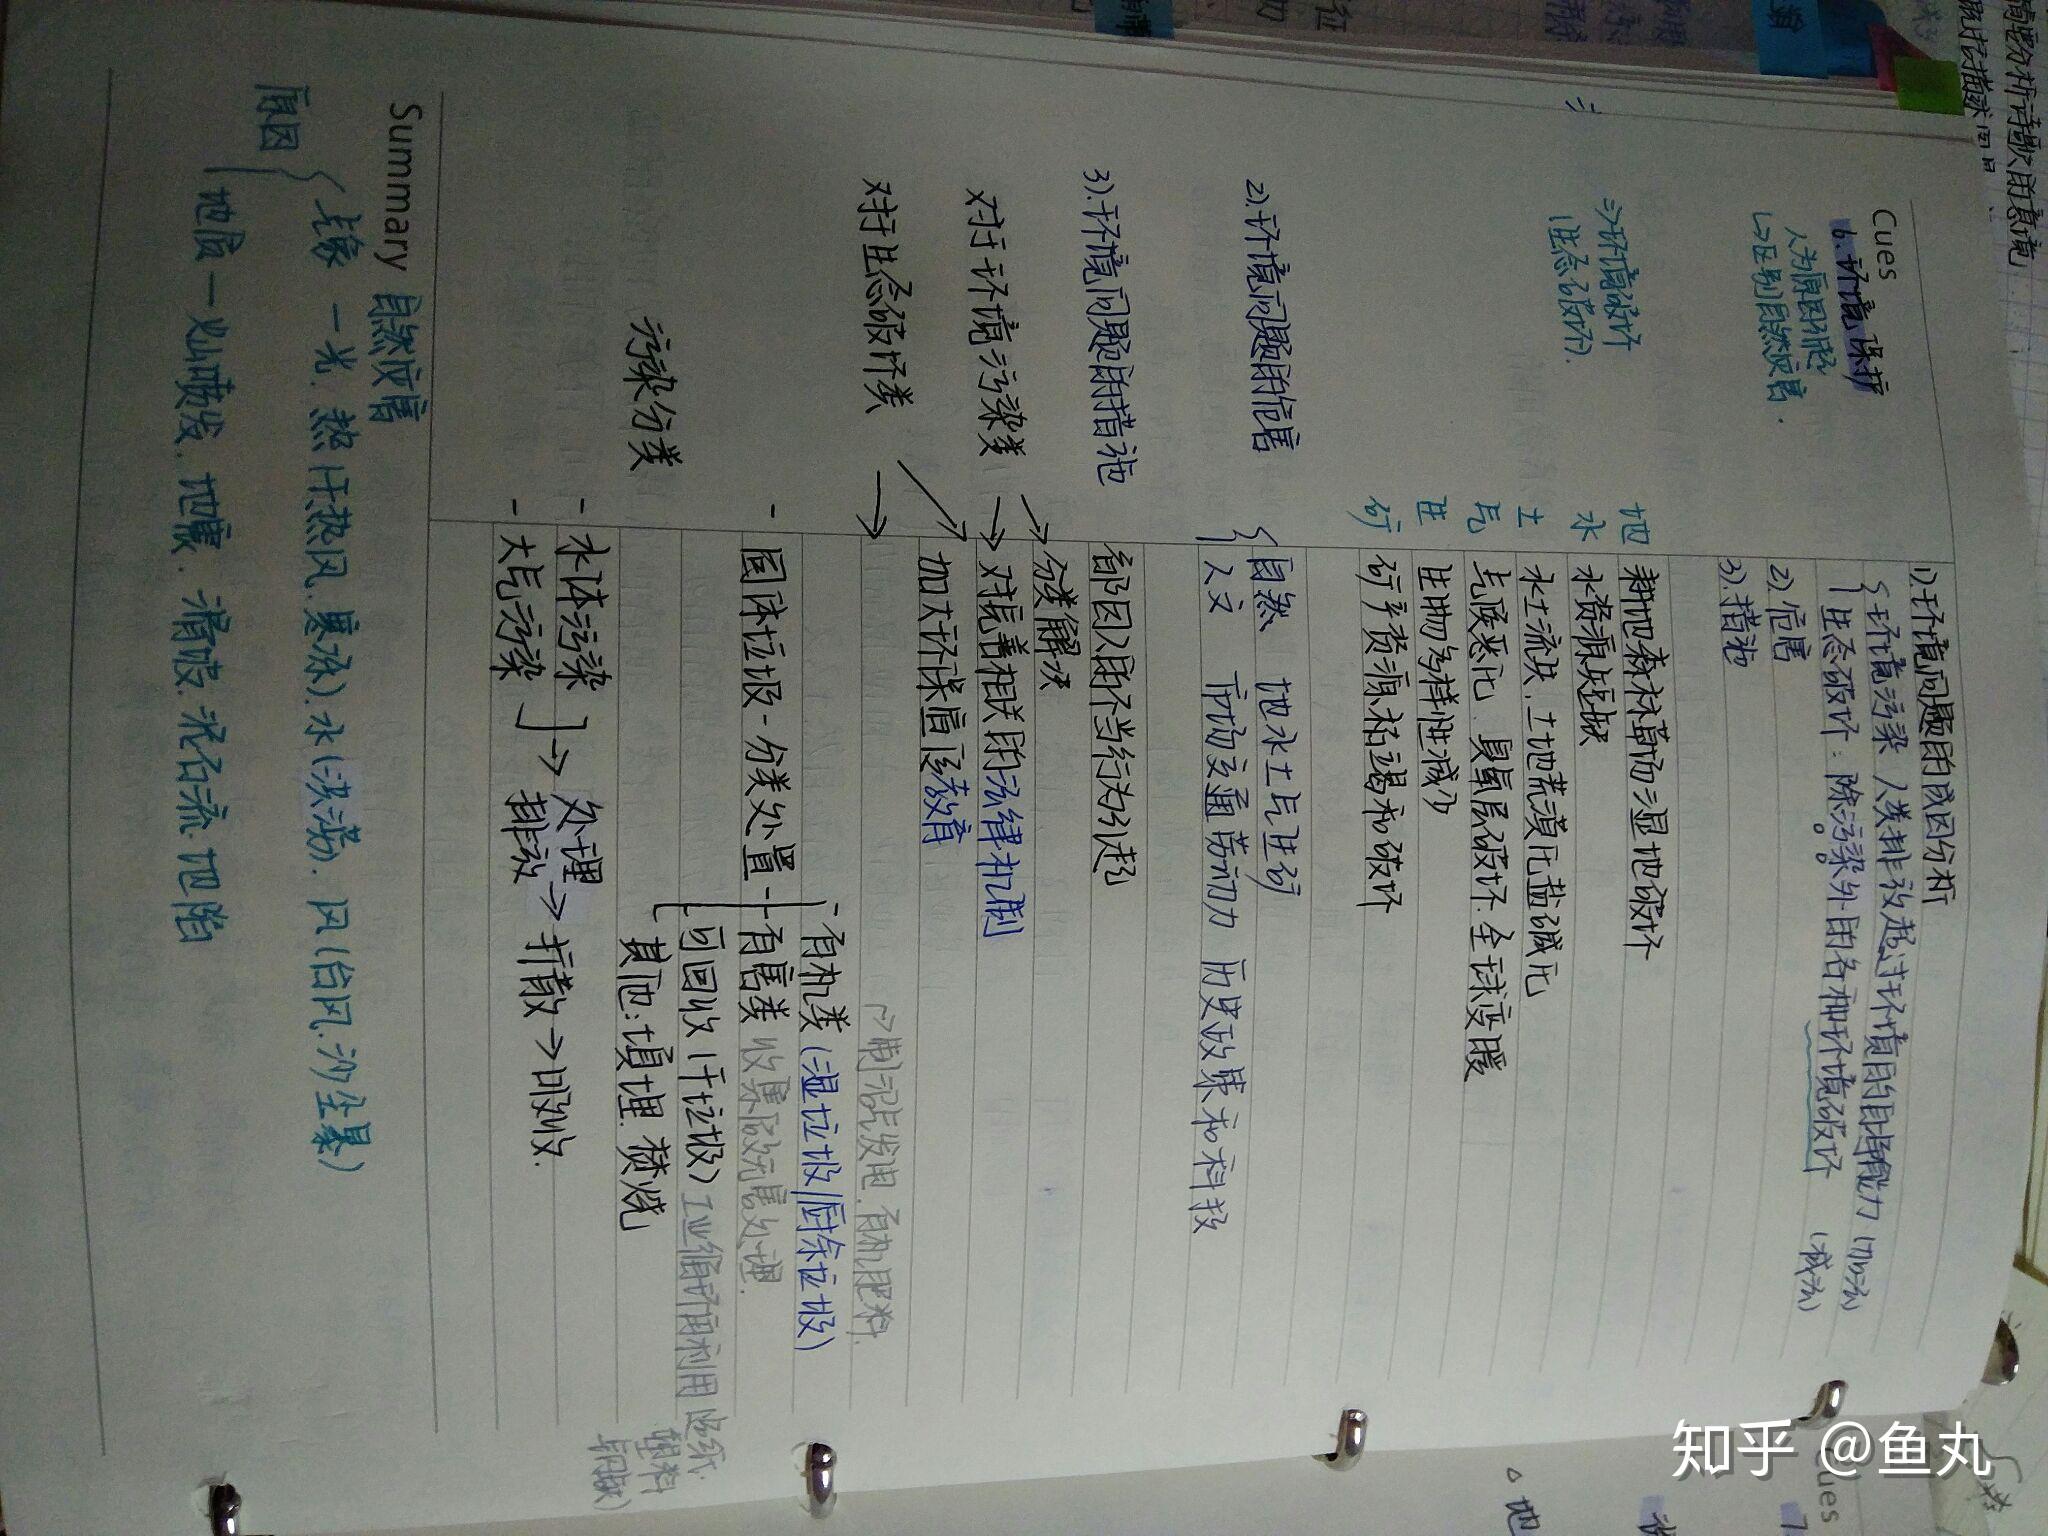 Cues
6.环境保护
人为原因引起
↳区别自然灾害.
1).环境问题的成因分析
环境污染 人类排放超过环境的自净能力 (加法)
生态破坏:除污染外的各种环境破坏 (减法)
2)危害
3).措施
=>环境破坏
(生态破坏).
地 耕地森林草原湿地破坏
水 水资源短缺
土 水土流失.土地荒漠化盐碱化
气 气候恶化.臭氧层破坏.全球变暖
生 生物多样性减少
矿 矿产资源枯竭和破坏
2).环境问题的危害
自然 地水土气生矿
人文 市场交通劳动力 历史政策和科技
3).环境问题的措施
都因人的不当行为引起
对于环境污染类
→分类解决
→对完善相关的法律机制
对于生态破坏类
加大环保宣传教育
→制沼气发电.有机肥料.
污染分类
- 固体垃圾-分类处置
- 有机类(湿垃圾/厨余垃圾)
有害类 收集做无害处理.
可回收(干垃圾) 工业循环再利用
其他:填埋.焚烧
- 水体污染
- 大气污染
处理
排放→扩散→吸收.
Summary 自然灾害
原因
气象-光.热(干热风.寒冻).水(洪涝).风(台风.沙尘暴)
地质-火山喷发.地震.滑坡.泥石流.地陷
知乎 @鱼丸
Cues